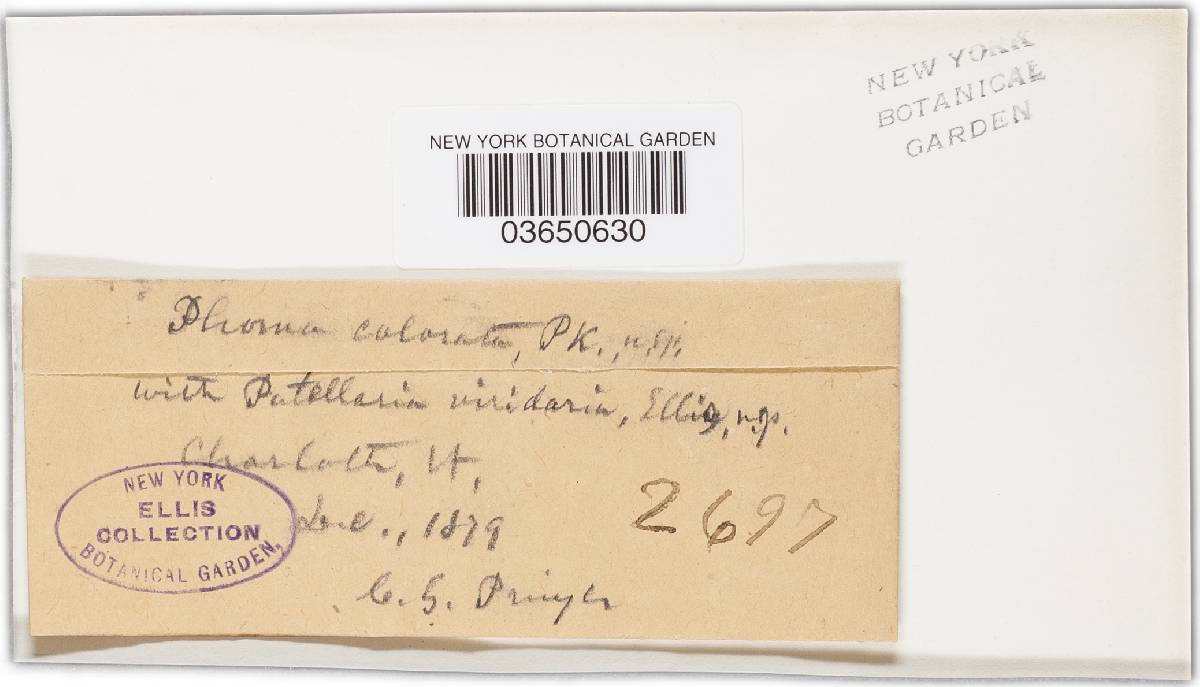 NEW YORK
BOTANICAL
GARDEN
NEW YORK BOTANICAL GARDEN
03650630
Phoma colorata, PK., n.sp.
with Patellaria viridaria, Ellis, n.sp.
Charlotte, Vt,
Dec., 1879
2697
C. G. Pringle
NEW YORK
ELLIS
COLLECTION
BOTANICAL GARDEN,